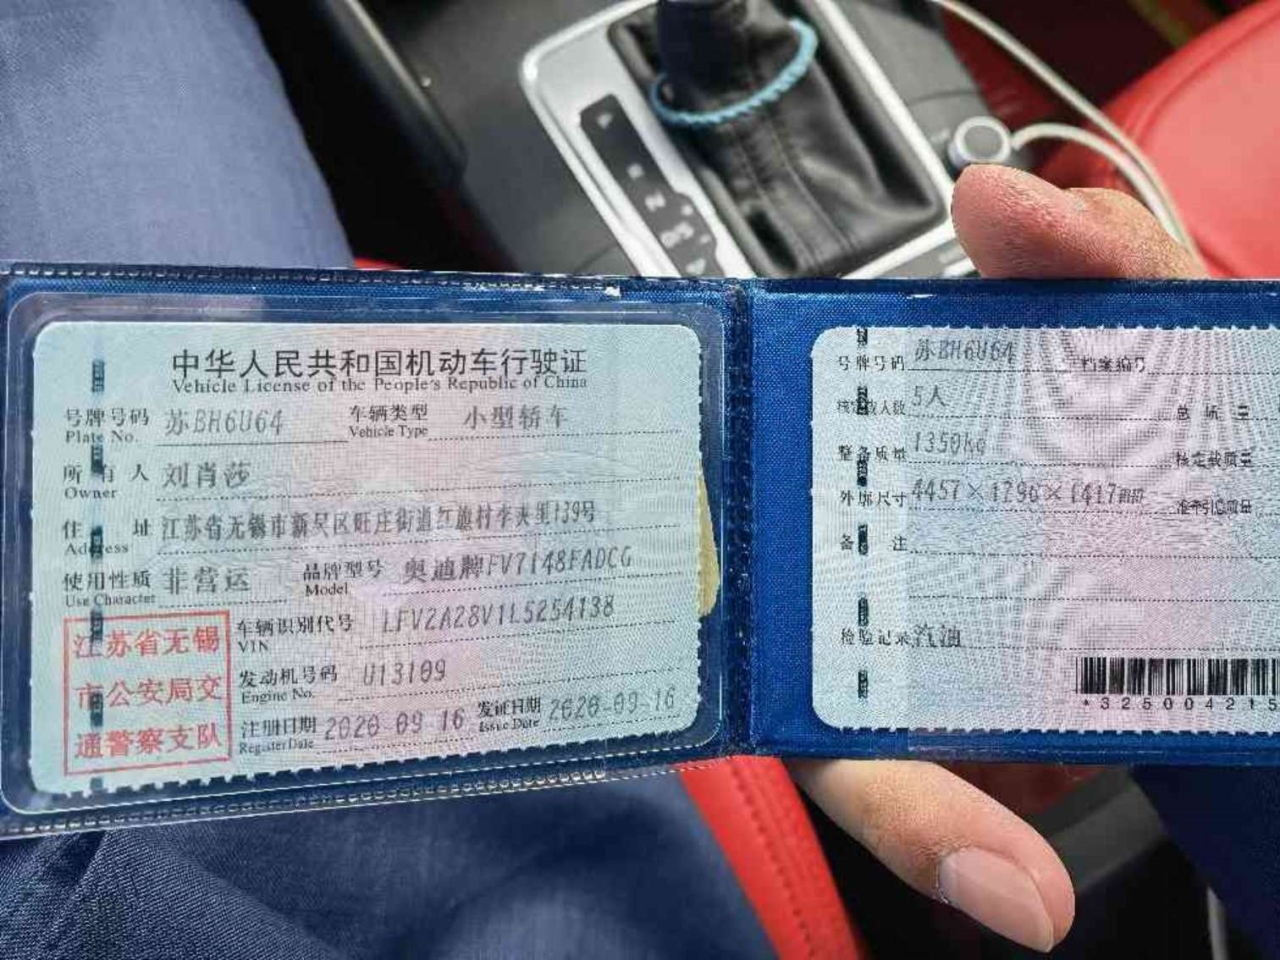 中华人民共和国机动车行驶证
Vehicle License of the People's Republic of China
号牌号码 苏BH6U64 车辆类型 小型轿车
Plate No. Vehicle Type
所有人 刘肖莎
Owner
住址 江苏省无锡市新吴区旺庄街道红旗村李夹里139号
Address
使用性质 非营运 品牌型号 奥迪牌FV7148FADCG
Use Character Model
江苏省无锡
市公安局交
通警察支队
车辆识别代号 LFV2A28V1L5254138
VIN
发动机号码 U13109
Engine No.
注册日期 2020-09-16 发证日期 2020-09-16
Register Date Issue Date
号牌号码 苏BH6U64 档案编号
核定载人数 5人 总质量
整备质量 1350kg 核定载质量
外廓尺寸 4457×1796×1417mm 准牵引总质量
备注
检验记录 汽油
*325004215